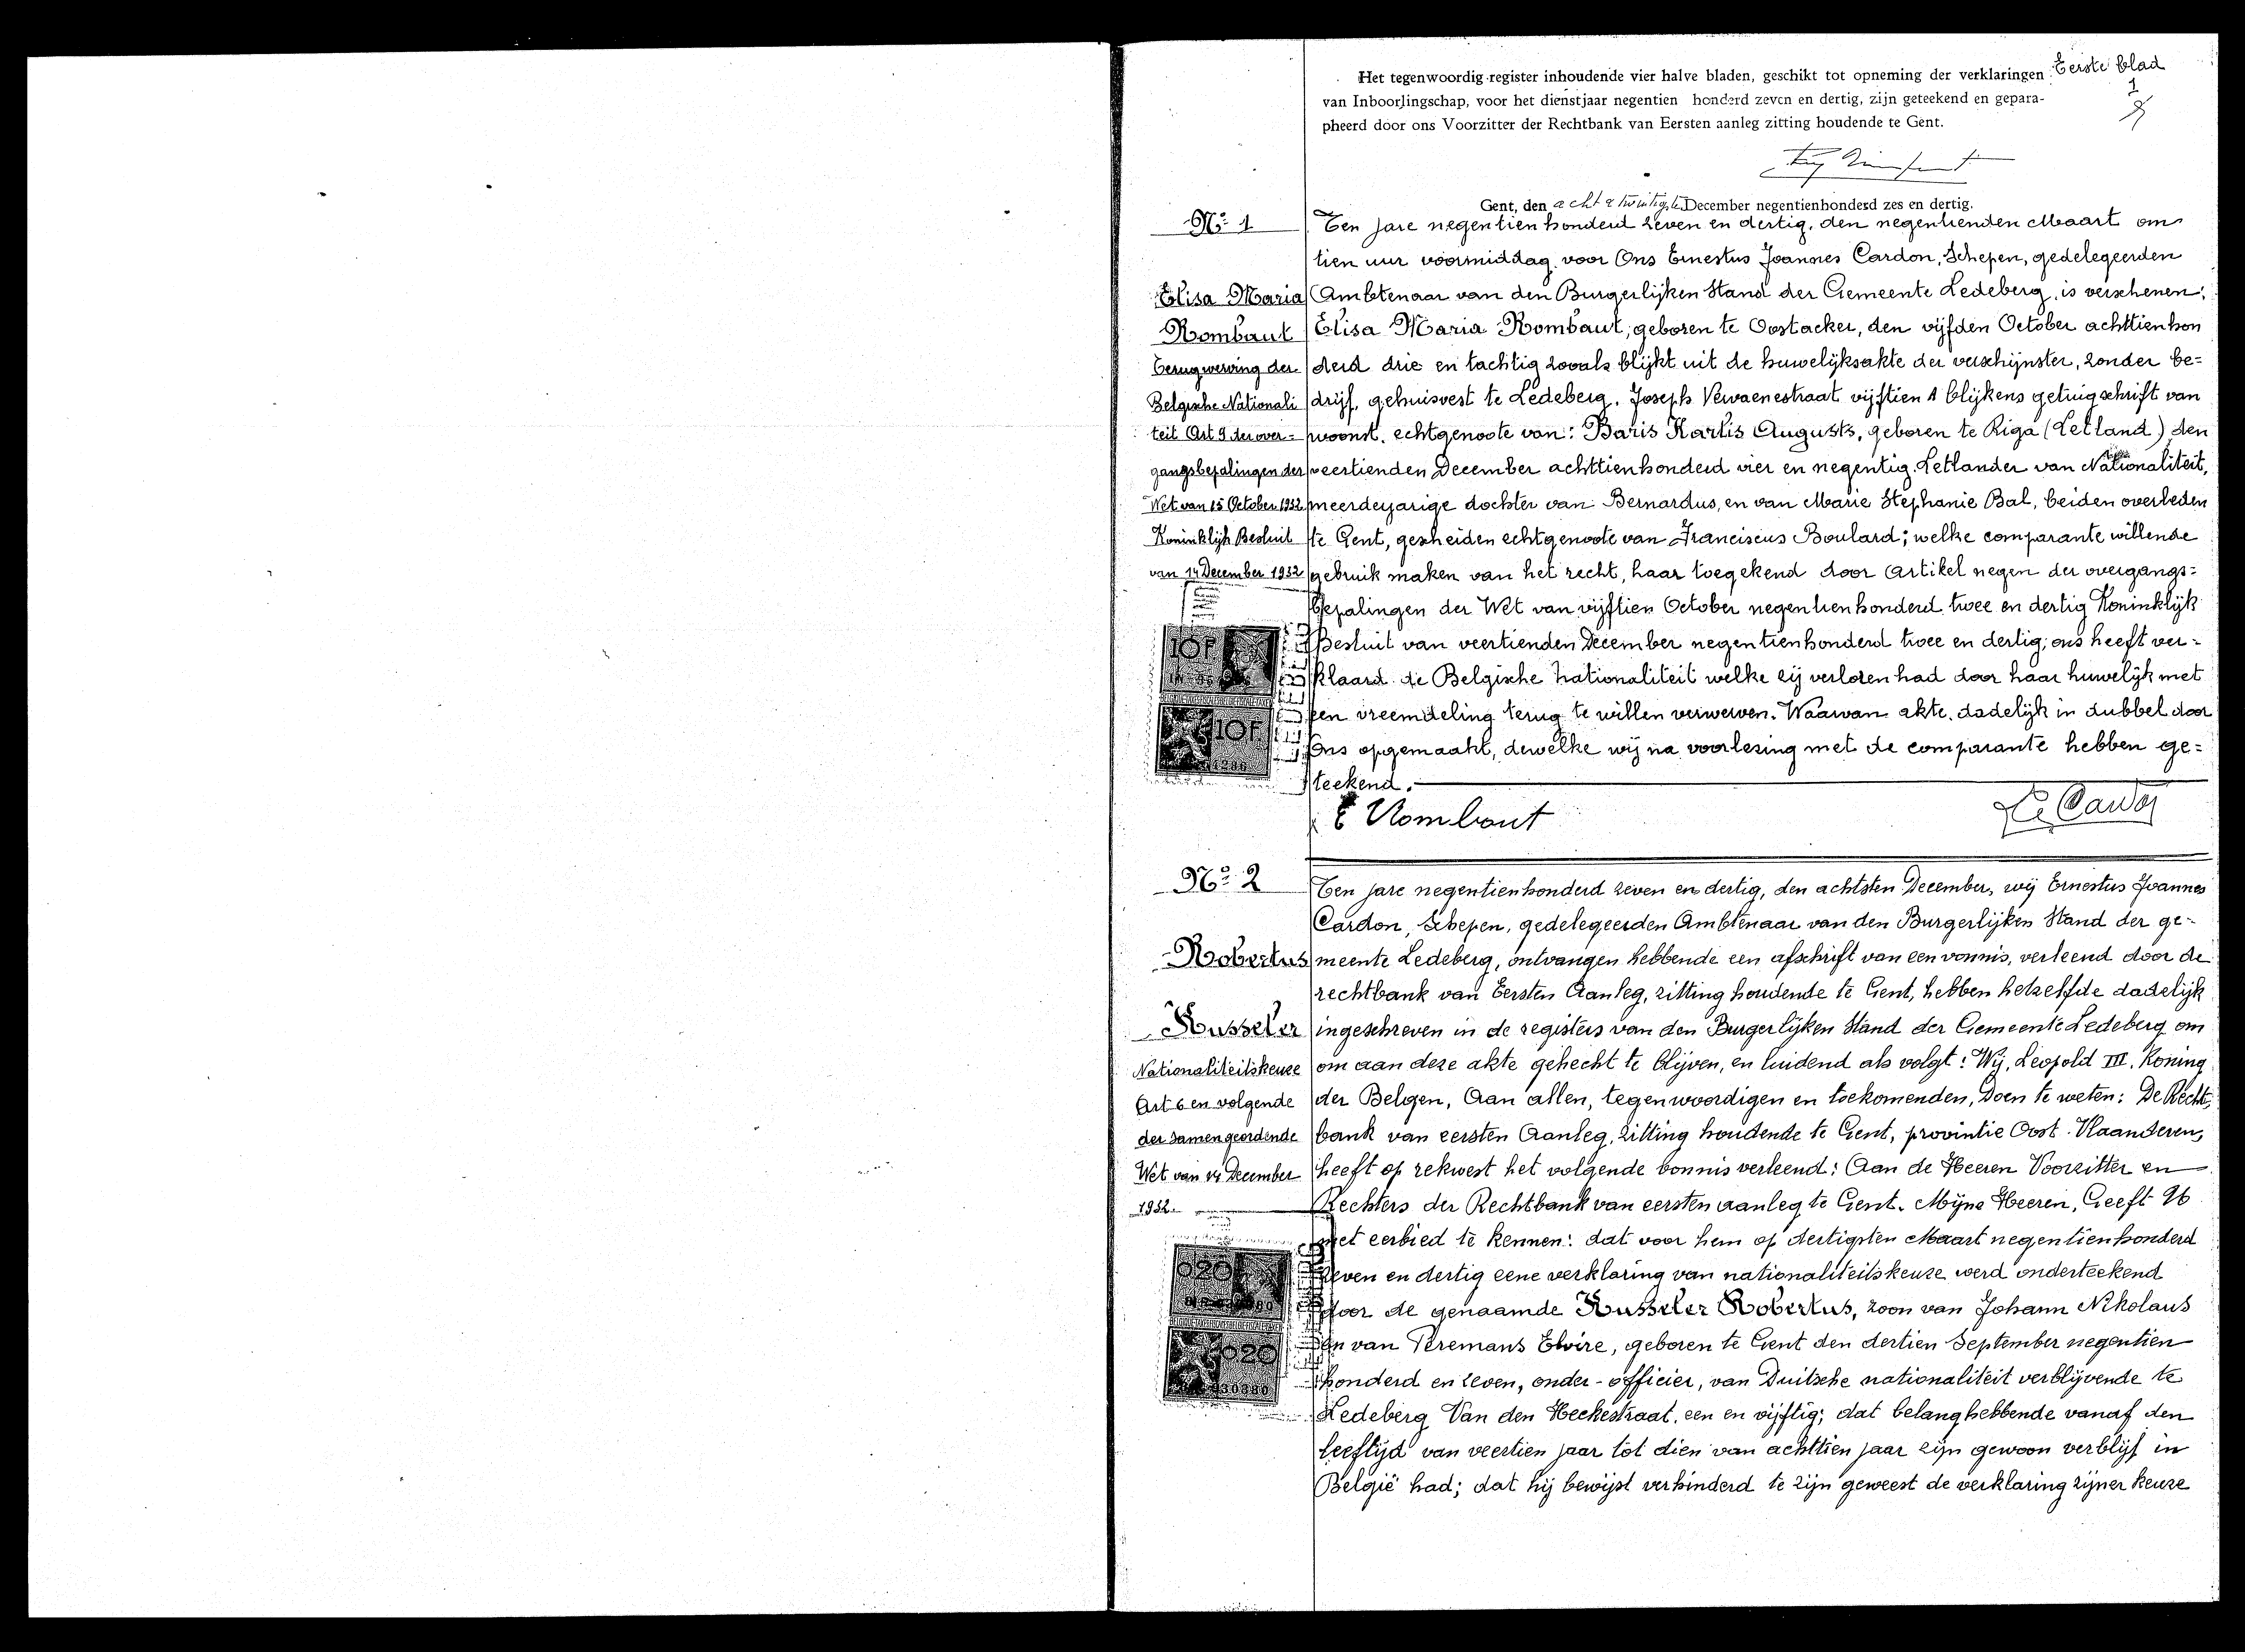 Het tegenwoordig register inhoudende vier halve bladen, geschikt tot opneming der verklaringen
van Inboorlingschap, voor het dienstjaar negentien honderd zeven en dertig, zijn geteekend en gepara-
pheerd door ons Voorzitter der Rechtbank van Eersten aanleg zitting houdende te Gent.
Eerste blad
1
Gent, den acht & twintigste December negentienhonderd zes en dertig.
No 1
Elisa Maria
Rombaut
Terugwerving der
Belgische Nationali
teit Art 9 der over=
gangsbepalingen der
Wet van 15 October 1932
Koninklijk Besluit
van 14 December 1932
Ten jare negentienhonderd zeven en dertig, den negentienden Maart om
tien uur voormiddag, voor Ons Ernestus Joannes Cardon, Schepen, gedelegeerden
Ambtenaar van den Burgerlijken Stand der Gemeente Ledeberg, is verschenen:
Elisa Maria Rombaut, geboren te Oostacker, den vijfden October achttienhon
derd drie en tachtig zooals blijkt uit de huwelijksakte der verschijnster, zonder be=
drijf, gehuisvest te Ledeberg, Joseph Vervaenestraat vijftien A blijkens getuigschrift van
woonst, echtgenoote van: Baris Karlis Augusts, geboren te Riga (Letland) den
veertienden December achttienhonderd vier en negentig, Letlander van Nationaliteit,
meerderjarige dochter van Bernardus, en van Marie Stephanie Bal, beiden overleden
te Gent, gescheiden echtgenoote van Franciscus Boulard; welke comparante willende
gebruik maken van het recht, haar toegekend door Artikel negen der overgangs=
bepalingen der Wet van vijftien October negentienhonderd twee en dertig Koninklijk
Besluit van veertienden December negentienhonderd twee en dertig, ons heeft ver=
klaard de Belgische nationaliteit welke zij verloren had door haar huwelijk met
een vreemdeling terug te willen verwerven. Waarvan akte, dadelijk in dubbel door
Ons opgemaakt, dewelke wij na voorlezing met de comparante hebben ge=
teekend.
10F
10F
E Rombaut
No 2
Robertus
Russeler
Nationaliteitskeuze
Art 6 en volgende
der samengeordende
Wet van 14 December
1932.
Ten jare negentienhonderd zeven en dertig, den achtsten December, wij Ernestus Joannes
Cardon, Schepen, gedelegeerden Ambtenaar van den Burgerlijken Stand der ge=
meente Ledeberg, ontvangen hebbende een afschrift van een vonnis, verleend door de
rechtbank van Eersten Aanleg, zitting houdende te Gent, hebben hetzelfde dadelijk
ingeschreven in de registers van den Burgerlijken Stand der Gemeente Ledeberg om
om aan deze akte gehecht te blijven, en luidend als volgt: Wij, Leopold III, Koning
der Belgen, Aan allen, tegenwoordigen en toekomenden, Doen te weten: De Recht,
bank van eersten Aanleg, zitting houdende te Gent, provintie Oost-Vlaanderen,
heeft op rekwest het volgende vonnis verleend: Aan de Heeren Voorzitter en
Rechters der Rechtbank van eersten aanleg te Gent. Mijne Heeren, Geeft U
met eerbied te kennen: dat voor hem op dertigsten Maart negentienhonderd
zeven en dertig eene verklaring van nationaliteitskeuze werd onderteekend
door de genaamde Russeler Robertus, zoon van Johann Nikolaus
en van Peremans Elvire, geboren te Gent den dertien September negentien
honderd en zeven, onder-officier, van Duitsche nationaliteit verblijvende te
Ledeberg Van den Heckestraat, een en vijftig; dat belanghebbende vanaf den
leeftijd van veertien jaar tot dien van achttien jaar zijn gewoon verblijf in
België had; dat hij bewijst verhinderd te zijn geweest de verklaring zijner keuze